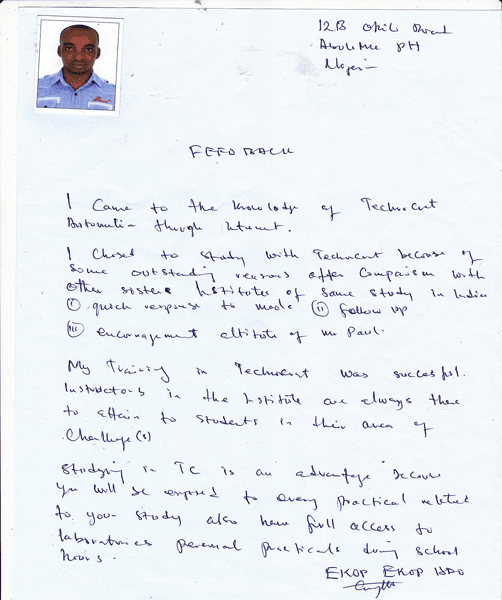 12B Okili Road
PH
Nigeria
FEEDBACK
I came to the knowledge of Technocrat
Automation through Internet.
I chosed to study with Technocrat because of
some outstanding reasons after Comparism with
other sisters Institutes of same study in India
(i) quick response to mails (ii) follow up
(iii) encouragement altitute of Mr Paul.
My Training in Technocrat was succesful.
Instructors in the Institute are always there
to attain to students in their area of
Challenge(s)
Studying in TC is an advantage because
you will be exposed to every practical related
to your study also have full access to
laboratories personal practicals during school
hours.
EKOP EKOP